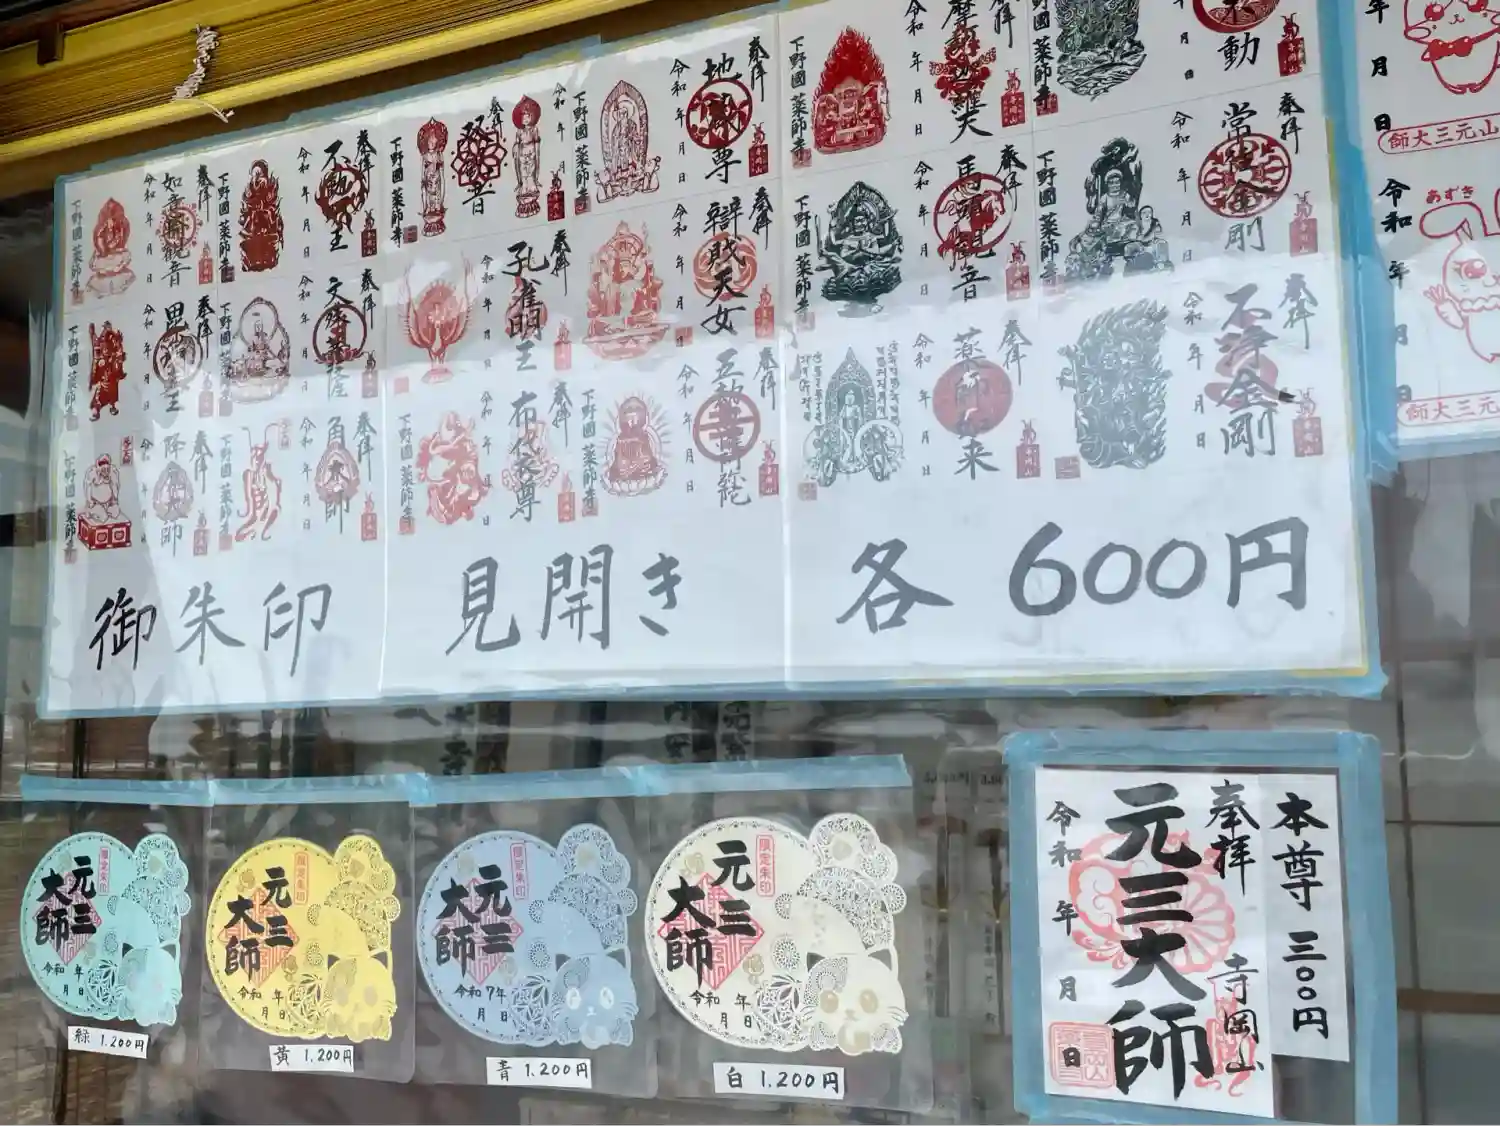 奉拝
地蔵尊
令和 年 月 日
下野國 薬師寺
奉拝
不動明王
令和 年 月 日
下野國 薬師寺
奉拝
如意輪観音
令和 年 月 日
下野國 薬師寺
奉拝
常住金剛
令和 年 月 日
下野國 薬師寺
奉拝
馬頭観音
令和 年 月 日
下野國 薬師寺
奉拝
辯財天女
令和 年 月 日
奉拝
孔雀明王
令和 年 月 日
奉拝
文殊菩薩
令和 年 月 日
奉拝
不浄金剛
令和 年 月 日
奉拝
薬師如来
令和 年 月 日
奉拝
令和 年 月 日
下野國 薬師寺
奉拝
布袋尊
令和 年 月 日
下野國 薬師寺
奉拝
角大師
令和 年 月 日
下野國 薬師寺
奉拝
降魔大師
御朱印 見開き 各600円
年 月 日
師大三元山
あずき
令和 年 月 日
師大三元
限定朱印
元三大師
令和 年 月 日
緑 1.200円
限定朱印
元三大師
令和 年 月 日
黄 1.200円
限定朱印
元三大師
令和7年 月 日
青 1.200円
限定朱印
元三大師
令和 年 月 日
白 1.200円
本尊 三〇〇円
奉拝
寺岡山
元三大師
令和 年 月 日